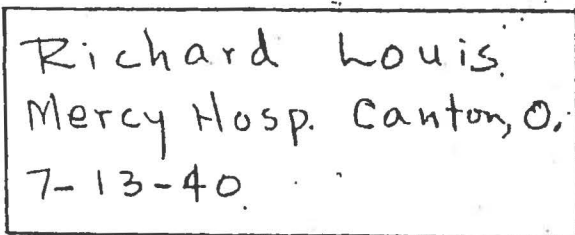 Richard Louis
Mercy Hosp. Canton, O.
7-13-40